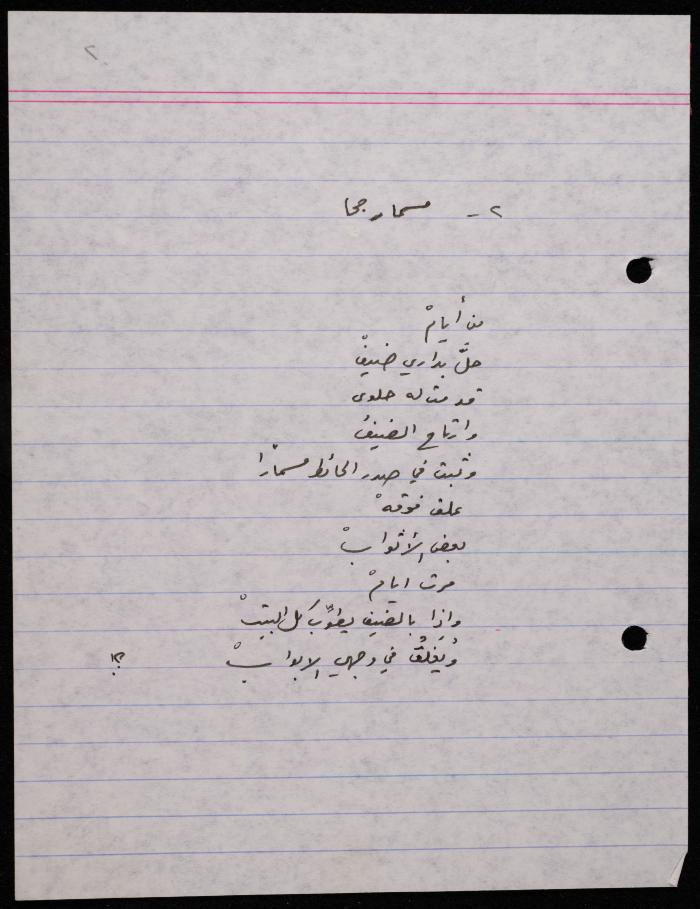 ٢
٢ - مسمار جحا
من أيامْ
حلَّ بداري ضيفْ
قدمت له حلوى
وارتاح الضيفُ
وثبت في صدر الحائط مسمارًا
علق فوقهْ
بعض الأثوابْ
مرت ايامْ
واذا بالضيف يطوِّب كل البيتْ
ويُغلقُ في وجهي الابوابْ ؟!